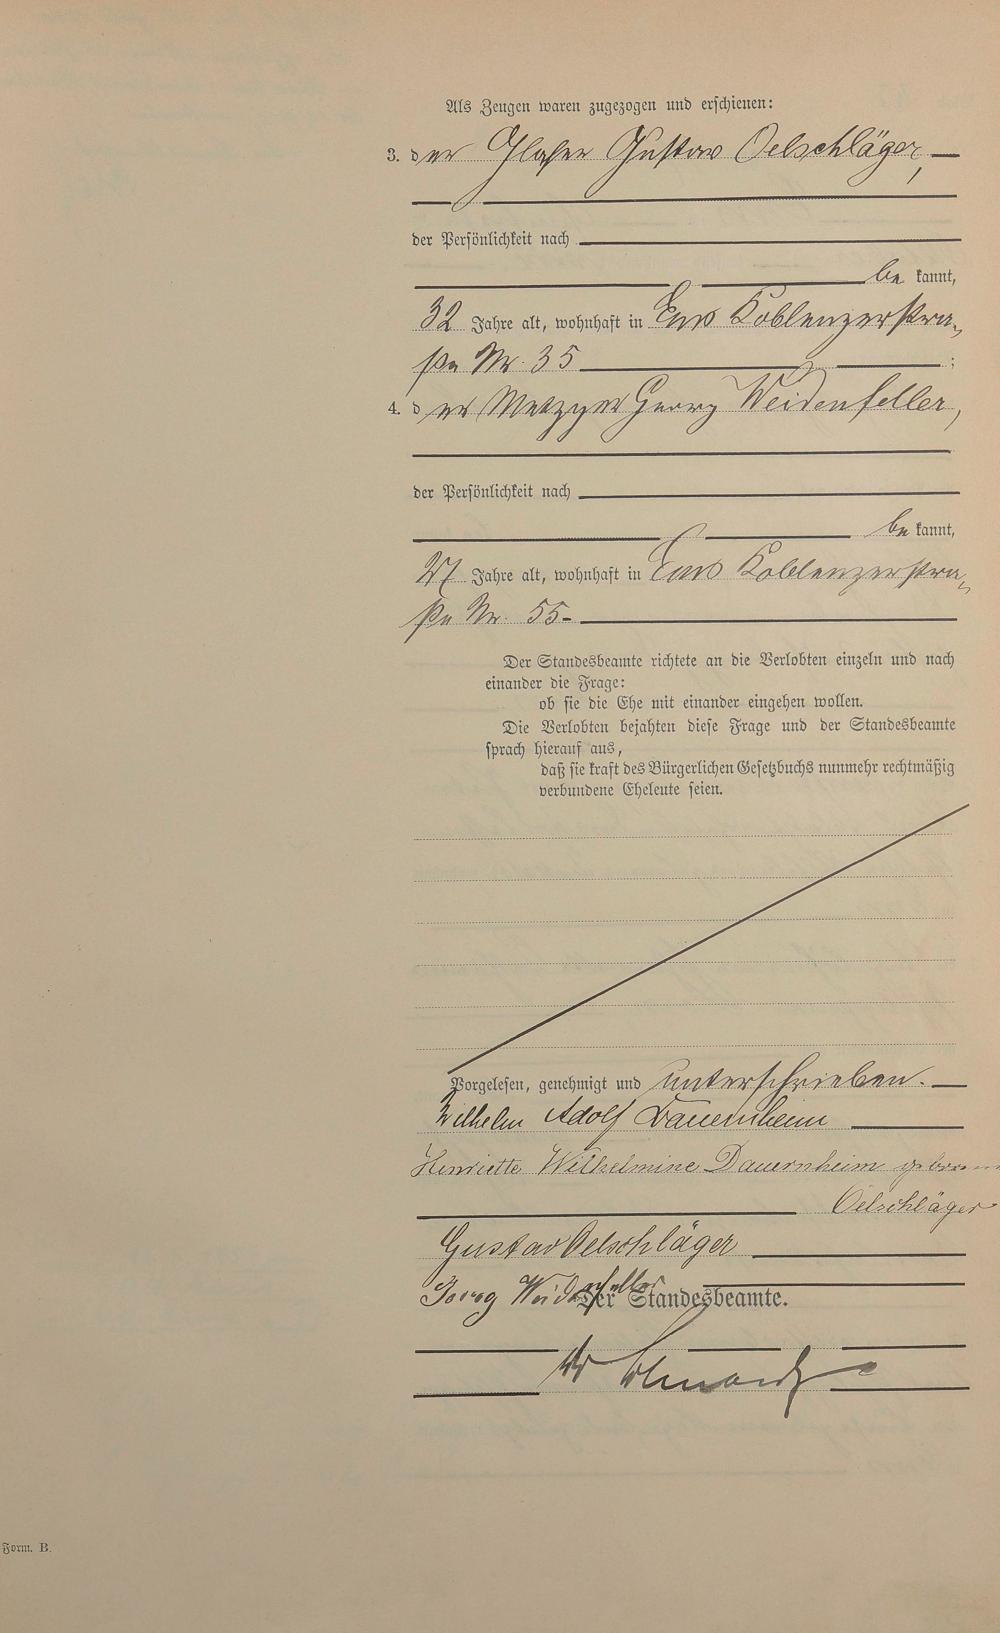 Als Zeugen waren zugezogen und erschienen:
3. der Glaser Gustav Oelschläger,
der Persönlichkeit nach
be kannt,
32 Jahre alt, wohnhaft in Ems Koblenzerstra-
ße Nr. 35 ;
4. der Metzger Georg Weidenfeller,
der Persönlichkeit nach
be kannt,
27 Jahre alt, wohnhaft in Ems Koblenzerstra-
ße Nr. 55.
Der Standesbeamte richtete an die Verlobten einzeln und nach
einander die Frage:
ob sie die Ehe mit einander eingehen wollen.
Die Verlobten bejahten diese Frage und der Standesbeamte
sprach hierauf aus,
daß sie kraft des Bürgerlichen Gesetzbuchs nunmehr rechtmäßig
verbundene Eheleute seien.
Vorgelesen, genehmigt und unterschrieben.
Wilhelm Adolf Dauernheim
Henriette Wilhelmine Dauernheim geborene
Oelschläger
Gustav Oelschläger
Georg Weidenfeller
Der Standesbeamte.
Form. B.